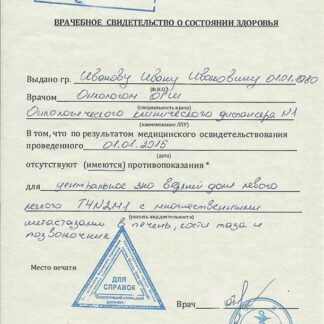 ВРАЧЕБНОЕ СВИДЕТЕЛЬСТВО О СОСТОЯНИИ ЗДОРОВЬЯ
Выдано гр. Иванову Ивану Ивановичу 01.01.1980
(Ф.и.о.)
Врачом Онкологом ОРШ
(специальность врача)
Онкологического клинического диспансера N1
(наименование ЛПУ)
В том, что по результатом медицинского освидетельствования
проведенного 01.01.2015
(дата)
отсутствуют (имеются) противопоказания *
для центральное зно верхней доли левого
легкого T4N2M1 с множественными
(указать вид деятельности)
метастазами в печень, кости таза и
позвоночник
Место печати
ДЛЯ
СПРАВОК
Врач